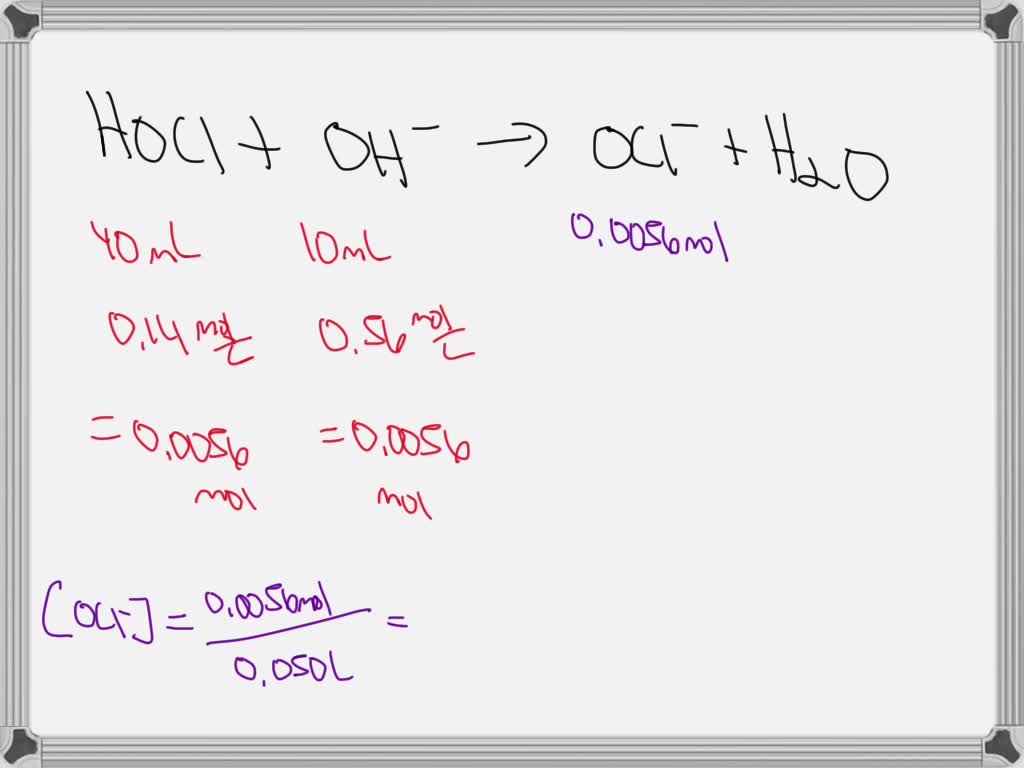 HOCl + OH⁻ → OCl⁻ + H₂O
40mL 10mL 0.0056mol
0.14 mol/L 0.56 mol/L
= 0.0056 mol = 0.0056 mol
[OCl⁻] = 0.0056mol / 0.050L =